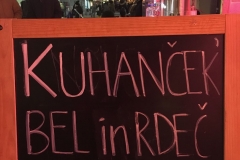 KUHANČEK
BEL in RDEČ